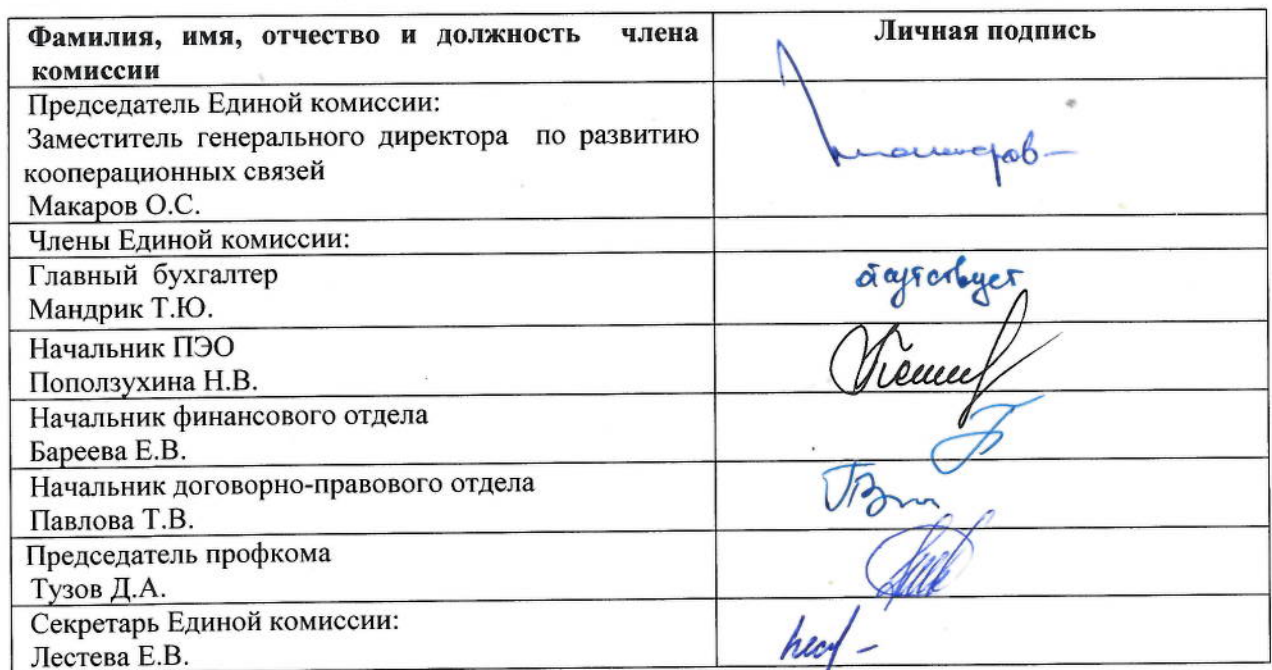 Фамилия, имя, отчество и должность члена
комиссии
Личная подпись
Председатель Единой комиссии:
Заместитель генерального директора по развитию
кооперационных связей
Макаров О.С.
Члены Единой комиссии:
Главный бухгалтер
Мандрик Т.Ю.
отсутствует
Начальник ПЭО
Поползухина Н.В.
Начальник финансового отдела
Бареева Е.В.
Начальник договорно-правового отдела
Павлова Т.В.
Председатель профкома
Тузов Д.А.
Секретарь Единой комиссии:
Лестева Е.В.